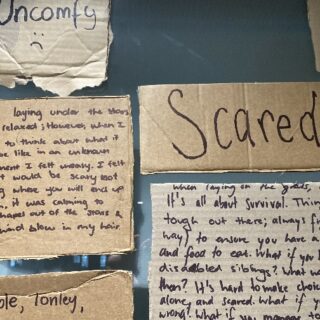 Uncomfy
laying under the stars
relaxed; However, when I
to think about what it
be like in an unknown
ment I felt uneasy. I felt
t would be scary not
g where you will ends up
n, it was calming to
hapes out of the stars &
wind blow in my hair
ble, lonley,
Scared
When laying on the grass,
It's all about survival. Thin
tough out there; always fi
way) to ensure you have a
and food to eat. What if you
disabled siblings? What
then? It's hard to make choic
alone, and scared. What if y
wrong? What if you manage to